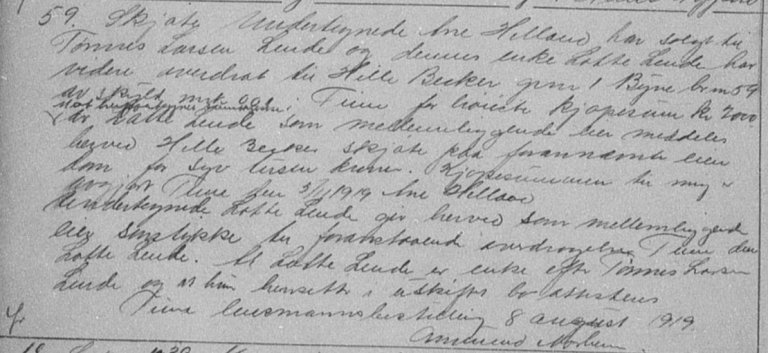 59. Skjøte. Undertegnede Ane Helland har solgt til
Tønnes Larsen Lende og dennes enke Lotte Lende har
videre overdrat til Hille Becker gnr 1 Bryne br.nr 59
av skyld mrk 0.01 i Time for hvilket kjøpesum kr 2000
Da Lotte Lende som mellemliggende eier meddeles
herved Hille Becker skjøte paa forannævnte eien
dom for syv tusen kroner. Kjøpesummen til mig
avgjort Time den 3/11 1919 Ane Helland
Undertegnede Lotte Lende gir herved som mellemliggende
eier samtykke til foranstaaende overdragelse Time den
Lotte Lende. At Lotte Lende er enke efter Tønnes Larsen
Lende og at hun hensitter i uskiftet bo attesteres
Time lensmannsbestilling 8 august 1919